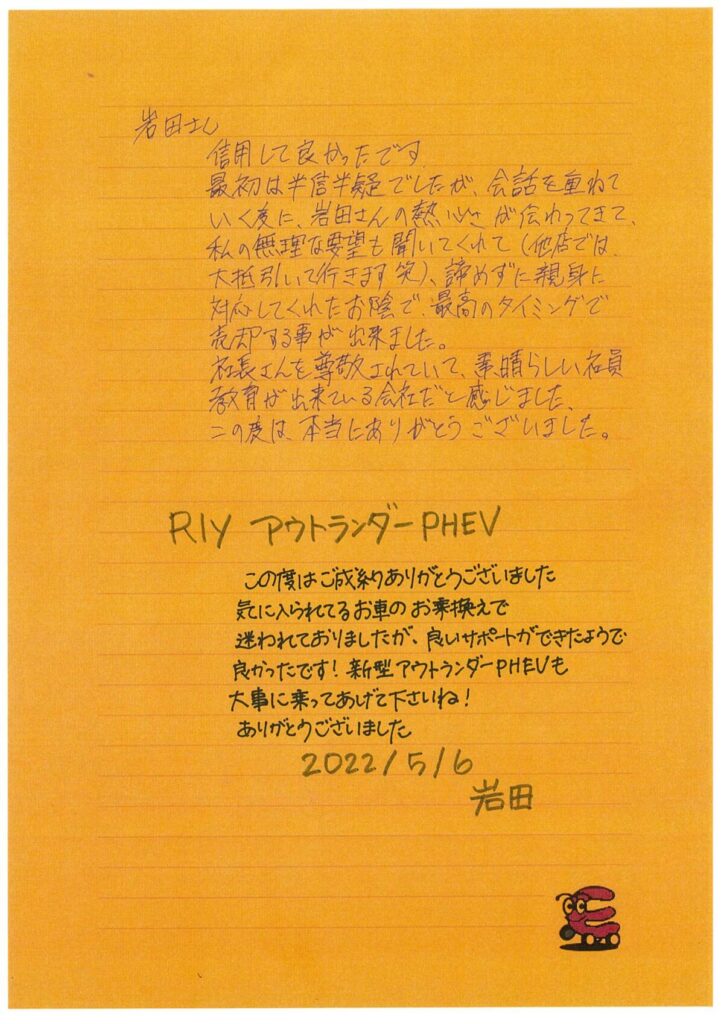 岩田さん
信用して良かったです。
最初は半信半疑でしたが、会話を重ねて
いく度に、岩田さんの熱心さが伝わってきて、
私の無理な要望も聞いてくれて(他店では、
大抵引いて行きます笑)、諦めずに親身に
対応してくれたお陰で、最高のタイミングで
売却する事が出来ました。
社長さんを尊敬されていて、素晴らしい社員
教育が出来ている会社だと感じました。
この度は、本当にありがとうございました。
R1Y アウトランダーPHEV
この度はご成約ありがとうございました
気に入られてるお車のお乗換えで
迷われておりましたが、良いサポートができたようで
良かったです！新型アウトランダーPHEVも
大事に乗ってあげて下さいね！
ありがとうございました
2022/5/6
岩田